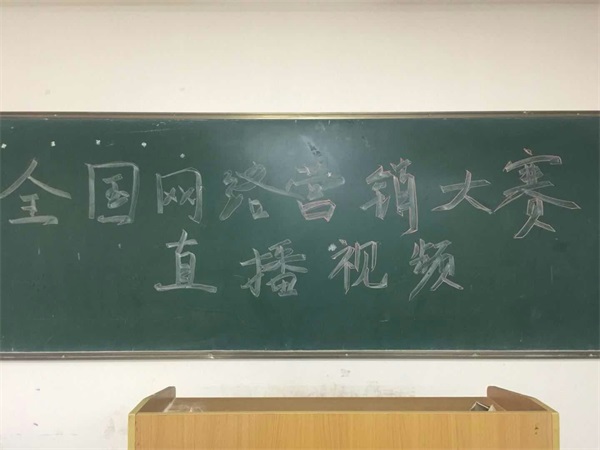 全国网络营销大赛
直播视频